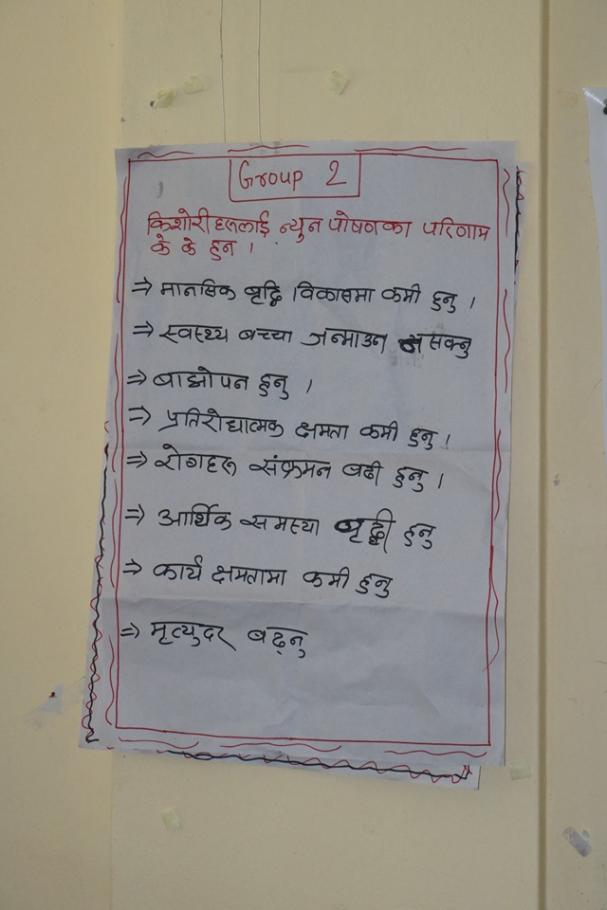 Group 2
किशोरीहरूलाई न्युन पोषणका परिणाम
के के हुन ।
⇒ मानसिक बृद्धि विकासमा कमी हुनु ।
⇒ स्वस्थ्य बच्चा जन्माउन नसक्नु
⇒ बाझोपन हुनु ।
⇒ प्रतिरोधात्मक क्षमता कमी हुनु ।
⇒ रोगहरू संक्रमन बढी हुनु ।
⇒ आर्थिक समस्या बृद्धी हुनु
⇒ कार्य क्षमतामा कमी हुनु
⇒ मृत्युदर बढ्नु